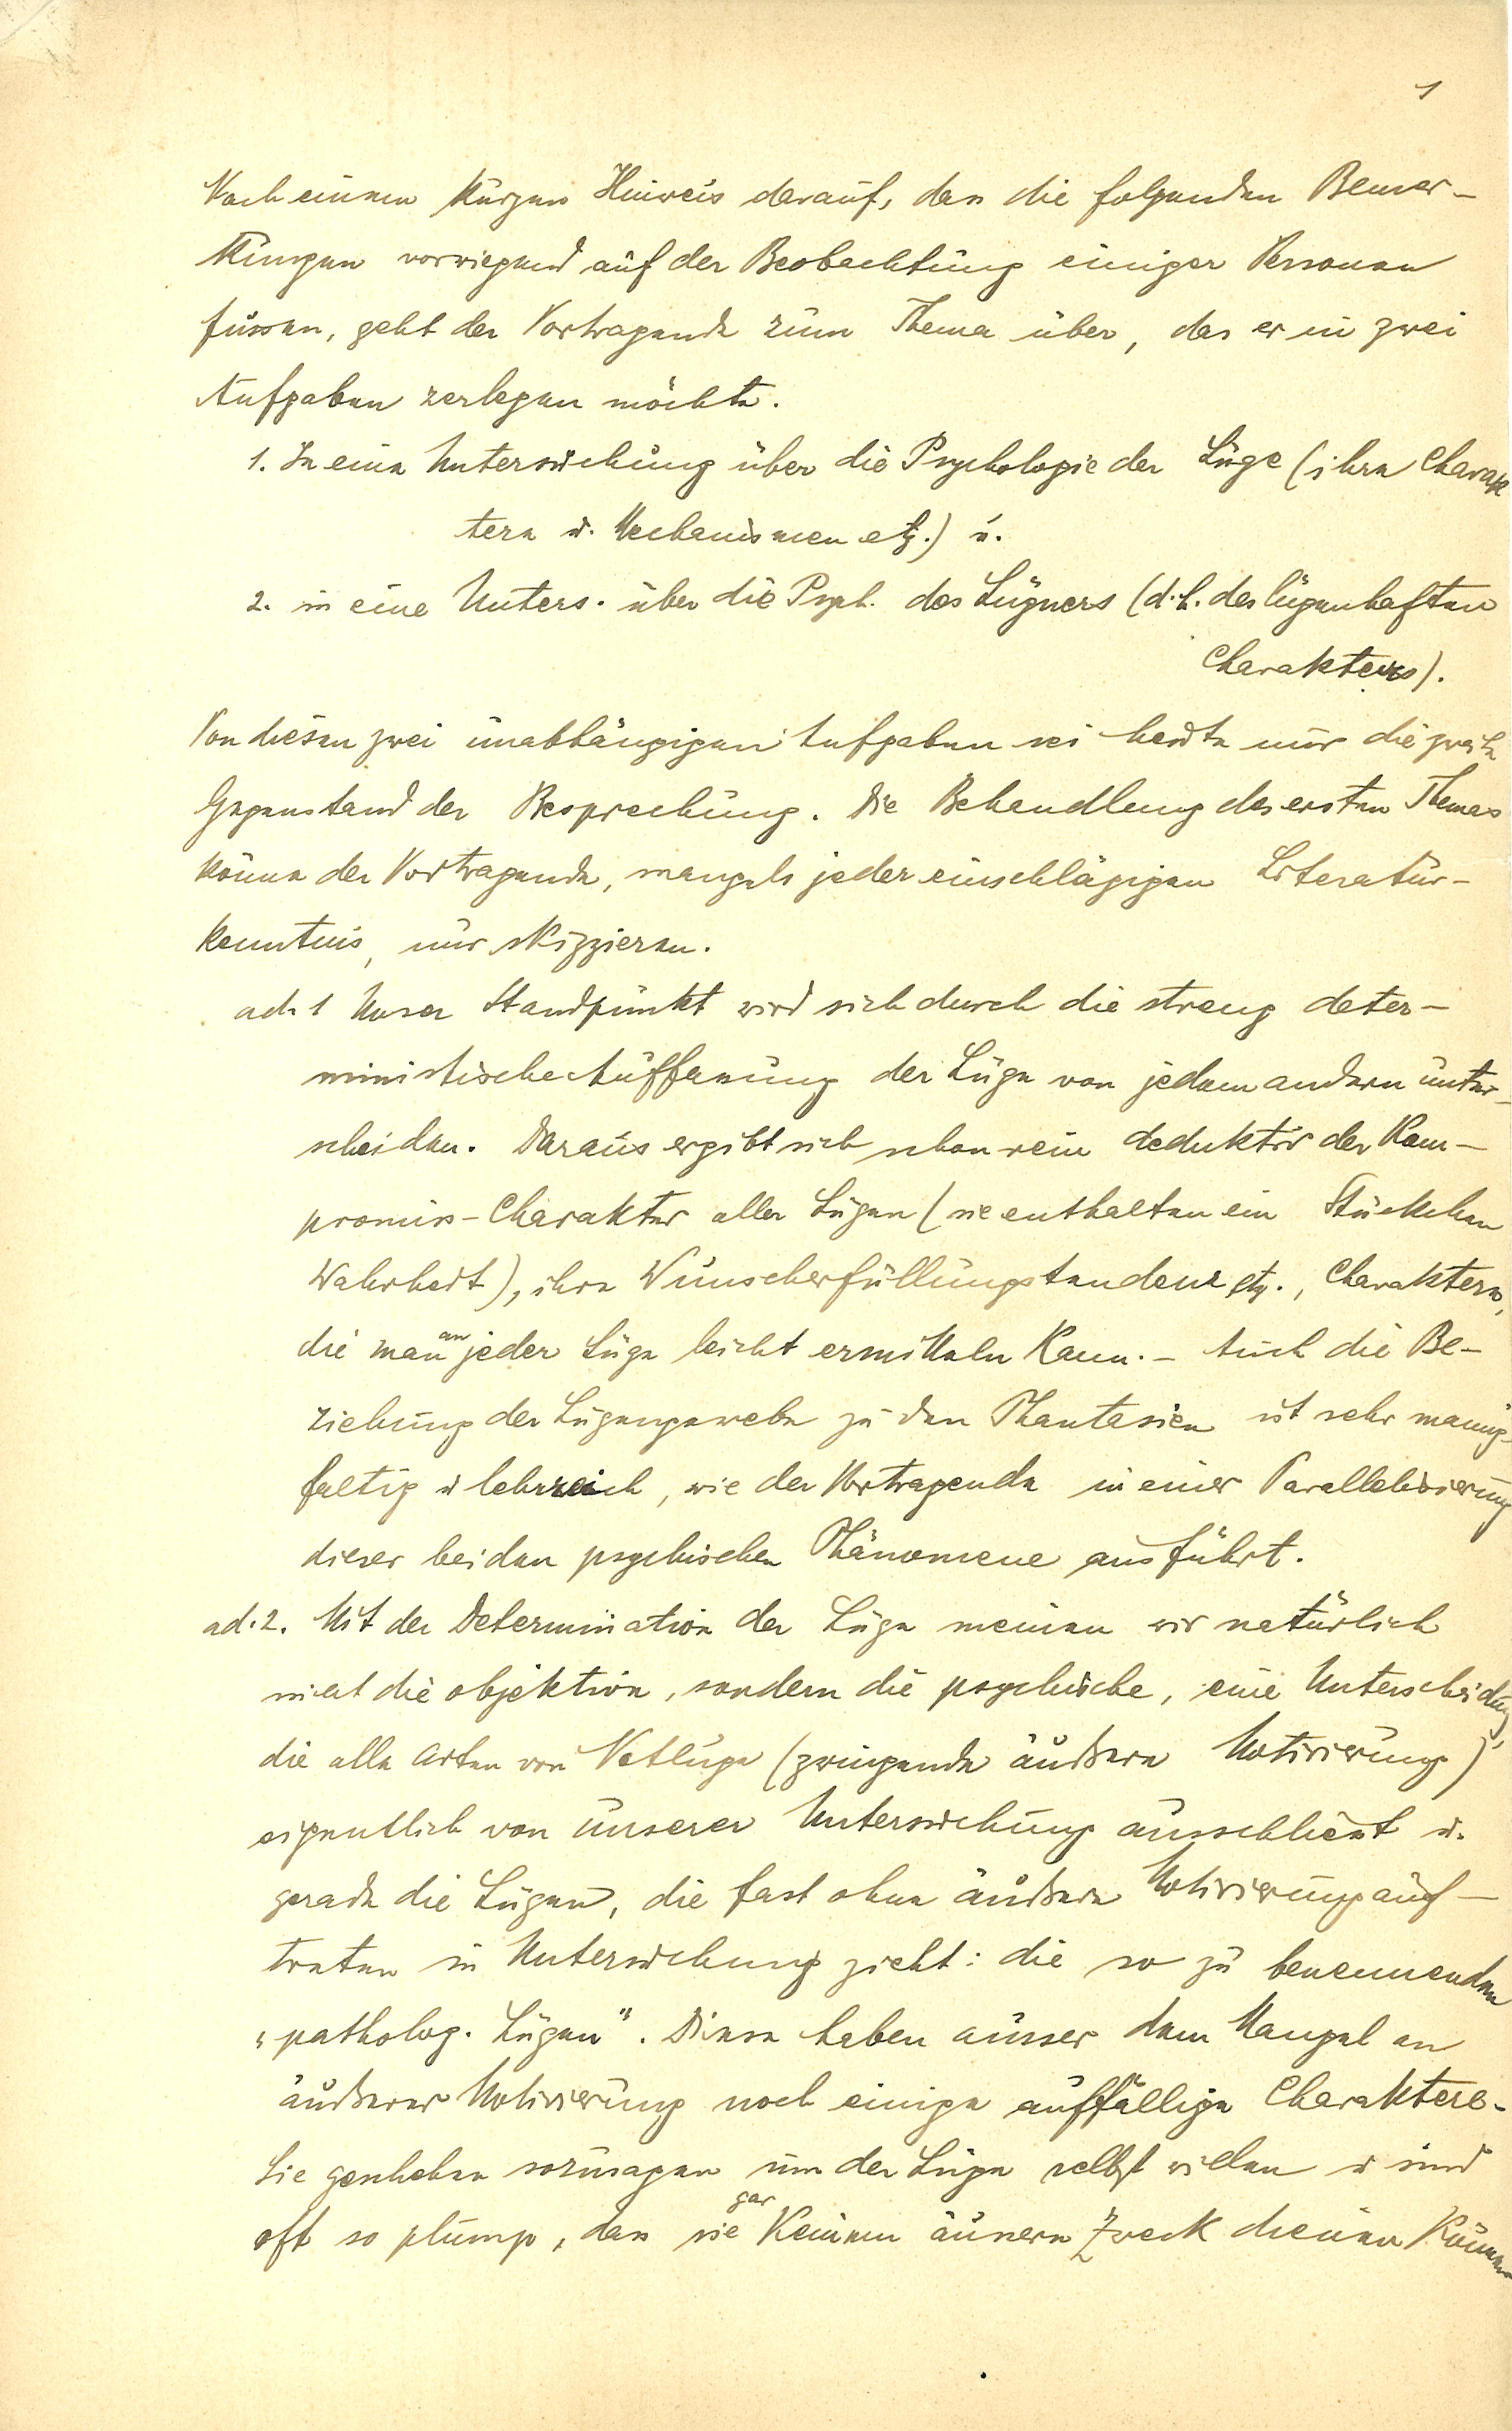 1
Nach einem kurzen Hinweis darauf, dass die folgenden Bemer-
kungen vorwiegend auf der Beobachtung einiger Personen
fussen, geht der Vortragende zum Thema über, das er in zwei
Aufgaben zerlegen möchte.
1. In eine Untersuchung über die Psychologie der Lüge (ihre Charak
tere u. Mechanismen etz.) u.
2. in eine Unters. über die Psych. des Lügners (d.h. des lügenhaften
Charakters).
Von diesen zwei unabhängigen Aufgaben sei heute nur die zweite
Gegenstand der Besprechung. Die Behandlung des ersten Themas
könne der Vortragende, mangels jeder einschlägigen Literatur-
kenntnis, nur skizzieren.
ad. 1 Unser Standpunkt wird sich durch die streng deter-
ministische Auffassung der Lüge von jedem andern unter-
scheiden. Daraus ergibt sich schon rein deduktiv der Kom-
promiss-Charakter aller Lügen (sie enthalten ein Stückchen
Wahrheit), ihre Wunscherfüllungstendenz etz., Charaktere,
die man an jeder Lüge leicht ermitteln kann. - Auch die Be-
ziehung der Lügengewebe zu den Phantasien ist sehr mannig-
faltig u lehrreich, wie der Vortragende in einer Parallelisierung
dieser beiden psychischen Phänomene ausführt.
ad. 2. Mit der Determination der Lüge meinen wir natürlich
nicht die objektive, sondern die psychische, eine Unterscheidung,
die alle Arten von Notlüge (zwingende äußere Motivierung)
eigentlich von unserer Untersuchung ausschliesst u.
gerade die Lügen, die fast ohne äußere Motivierung auf-
treten in Untersuchung zieht: die so zu benennenden
„patholog. Lügen". Diese haben ausser dem Mangel an
äußerer Motivierung noch einige auffällige Charaktere.
Sie geschehen sozusagen um der Lüge selbst willen u sind
oft so plump, dass sie gar keinem äussern Zweck dienen können